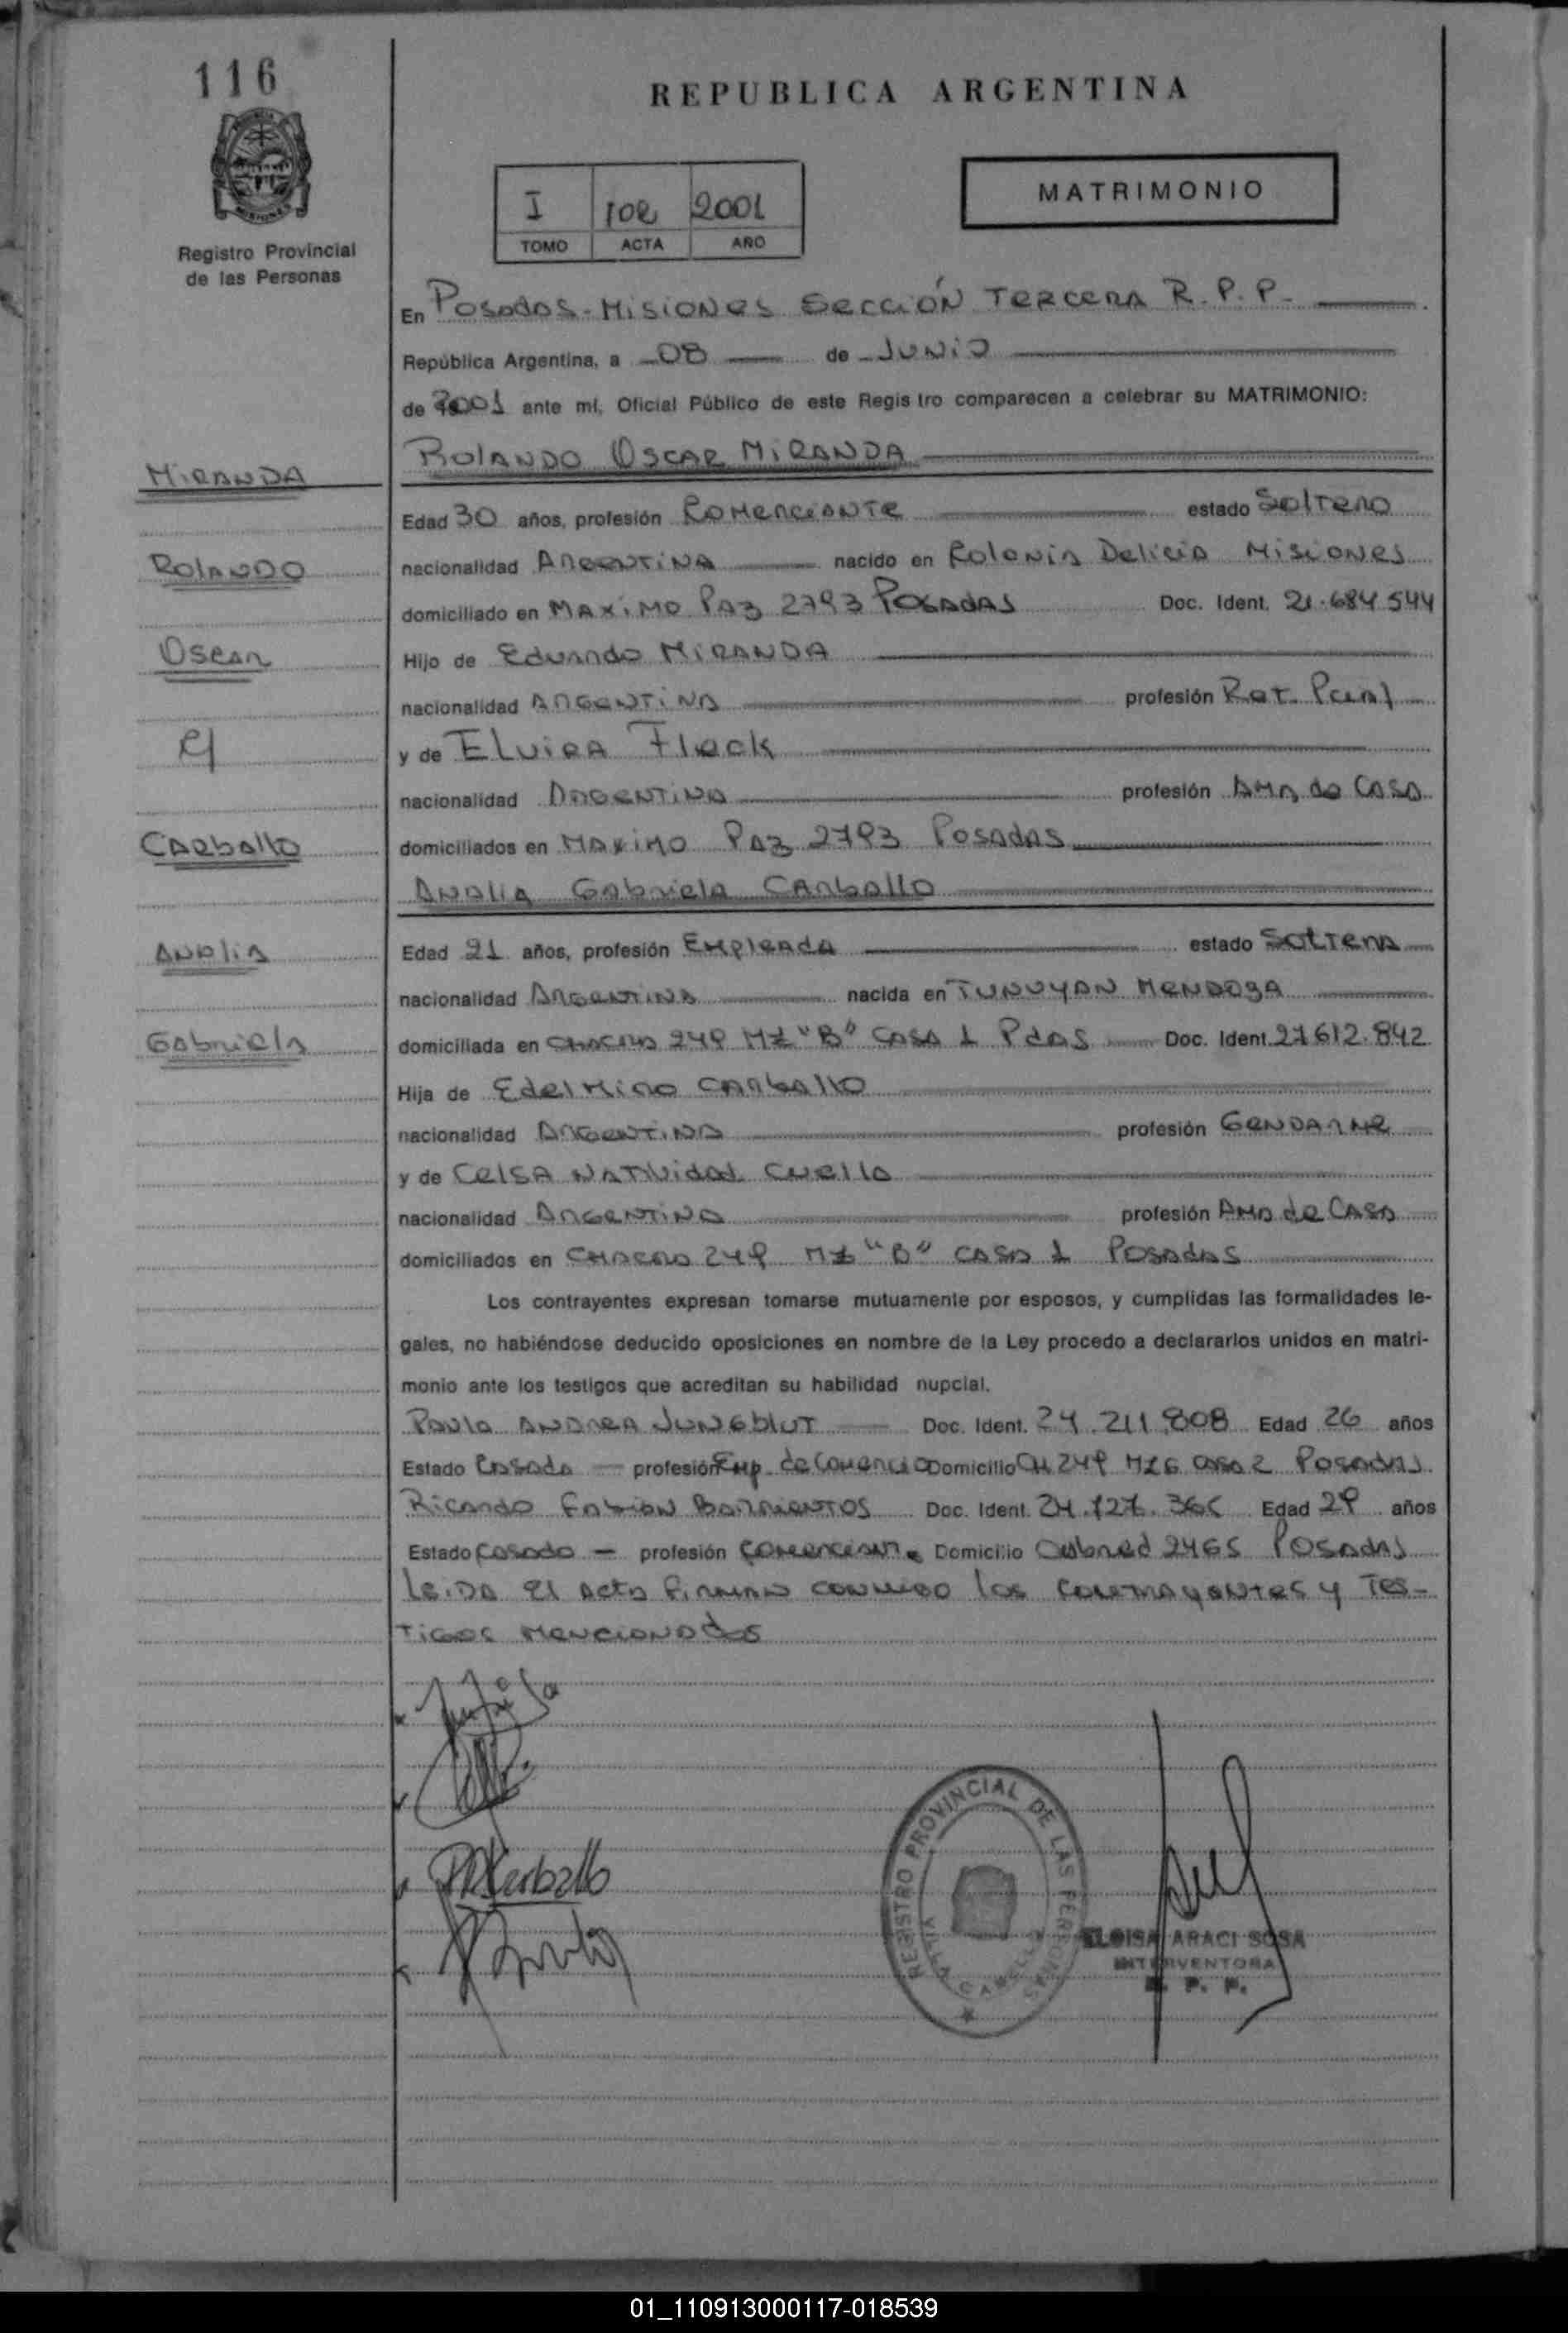 116
REPUBLICA ARGENTINA
MATRIMONIO
I 102 2001
TOMO ACTA AÑO
Registro Provincial
de las Personas
En Posadas - Misiones Sección Tercera R.P.P.
República Argentina, a 08 de Junio
de 2001 ante mí, Oficial Público de este Registro comparecen a celebrar su MATRIMONIO:
Rolando Oscar Miranda
MIRANDA
Edad 30 años, profesión Comerciante estado Soltero
nacionalidad Argentina nacido en Colonia Delicia Misiones
Rolando
domiciliado en Maximo Paz 2793 Posadas Doc. Ident. 21.684.544
Oscar
Hijo de Eduardo MIRANDA
nacionalidad Argentina profesión Ret.
y de Elvira Fleck
nacionalidad Argentina profesión Ama de Casa
Carballo
domiciliados en Maximo Paz 2793 Posadas
Analia Gabriela Carballo
Analia
Edad 21 años, profesión Empleada estado Soltera
nacionalidad Argentina nacida en Tunuyan Mendoza
Gabriela
domiciliada en Chacra 249 Mz "B" Casa 1 Pdas Doc. Ident. 27.612.842
Hija de Edelmiro Carballo
nacionalidad Argentina profesión Gendarme
y de Celsa Natividad Cuello
nacionalidad Argentina profesión Ama de Casa
domiciliados en Chacra 249 Mz "B" Casa 1 Posadas
Los contrayentes expresan tomarse mutuamente por esposos, y cumplidas las formalidades le-
gales, no habiéndose deducido oposiciones en nombre de la Ley procedo a declararlos unidos en matri-
monio ante los testigos que acreditan su habilidad nupcial.
Paula Andrea Jungblut Doc. Ident. 24.211.808 Edad 26 años
Estado Casada profesión Emp. de Comercio Domicilio Ch 249 Casa 2 Posadas
Ricardo Fabian Barrientos Doc. Ident. Edad 29 años
Estado Casado profesión Domicilio 2465 Posadas
Leida el Acta firman conmigo los contrayentes y Tes-
tigos mencionados
Carballo
REGISTRO PROVINCIAL DE LAS PERSONAS
VILLA CABELLO
ELOISA ARACI SOSA
INTERVENTORA
R. P. P.
01_110913000117-018539